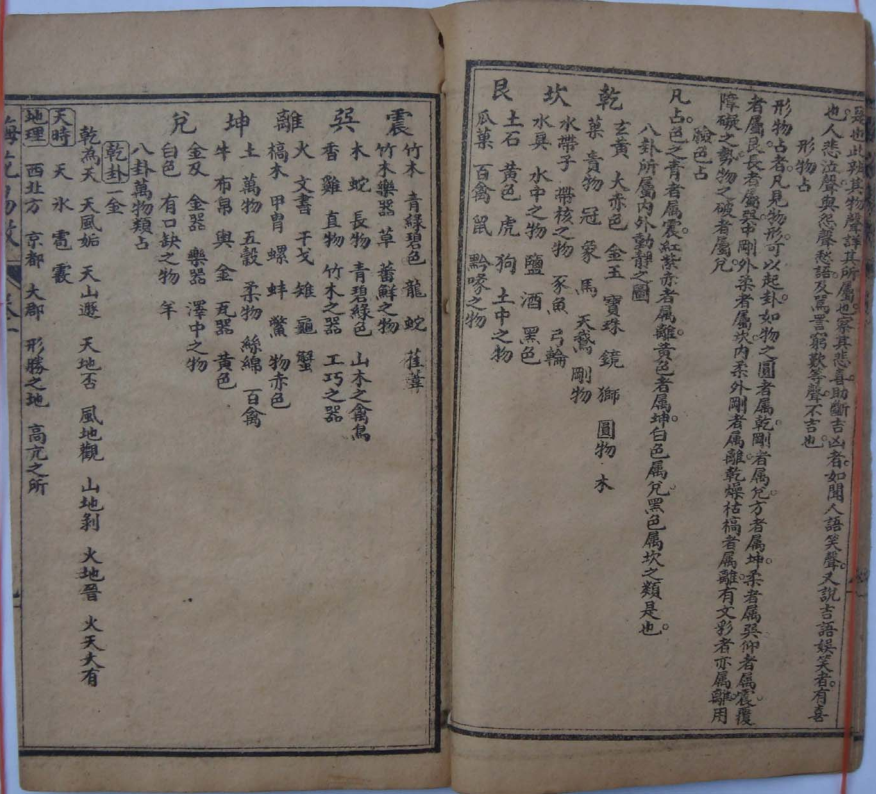 也人悲泣聲與怨聲愁語及罵詈窮歎等聲不吉也
形物占
形物占者凡見物形可以起卦如物之圓者属乾剛者属兌方者属坤柔者属巽仰者属震覆
者屬艮長者屬巽中剛外柔者屬坎内柔外剛者属離乾燥枯槁者属離有文彩者亦属離用
障礙之勢物之破者屬兌
驗色占
凡占色之青者属震紅紫赤者属離黄色者属坤白色属兌黑色属坎之類是也
八卦所屬内外動靜之圖
乾 玄黄 大赤色 金玉 寶珠 鏡 獅 圓物 木
菓 貴物 冠 象 馬 天鵝 剛物
坎 水帶子 帶核之物 豕魚 弓輪
水具 水中之物 鹽 酒 黑色
艮 土石 黄色 虎 狗 土中之物
瓜菓 百禽 鼠 黔喙之物
震 竹木 青綠碧色 龍 蛇 萑葦
竹木樂器 草 蕃鮮之物
巽 木 蛇 長物 青碧綠色 山木之禽鳥
香 雞 直物 竹木之器 工巧之器
離 火 文書 干戈 雉 龜 蟹
槁木 甲冑 螺 蚌 鱉 物赤色
坤 土 萬物 五穀 柔物 絲綿 百禽
牛 布帛 輿 金 瓦器 黄色
兌 金及 金器 樂器 澤中之物
白色 有口缺之物 羊
八卦萬物類占
乾卦 一金
乾為天 天風姤 天山遯 天地否 風地觀 山地剝 火地晉 火天大有
天時 天 氷 雹 霰
地理 西北方 京都 大郡 形勝之地 高亢之所
梅花易數 卷一